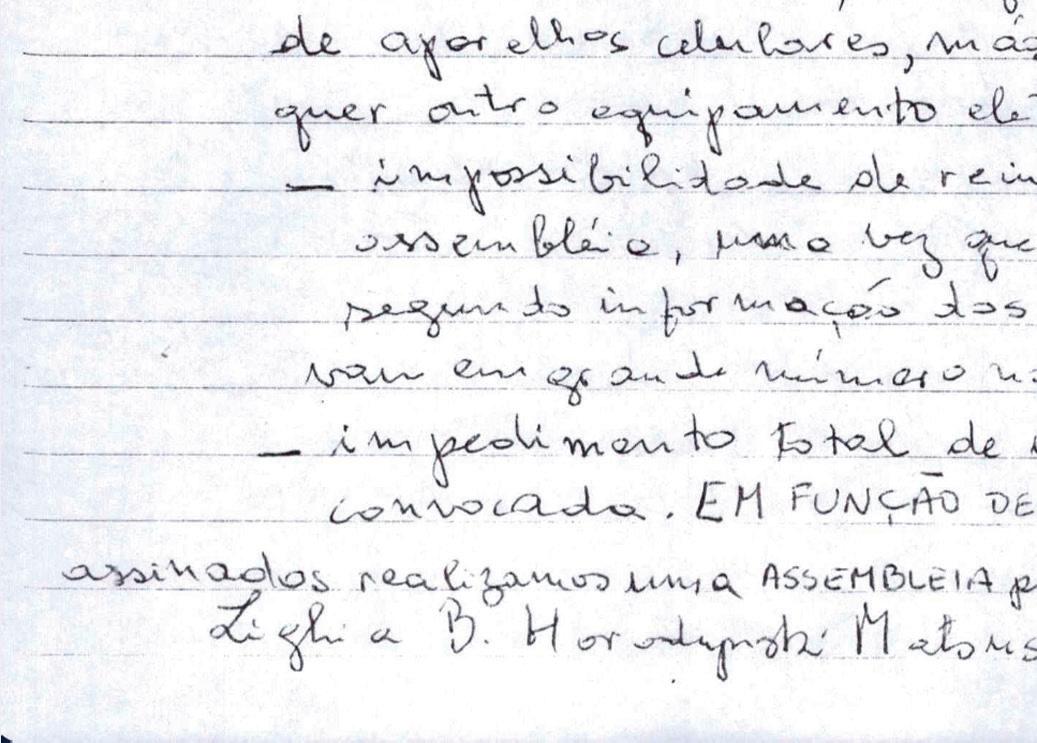 de aparelhos celulares, má
quer outro equipamento ele
— impossibilidade de rein
assembléia, uma vez que
segundo informação dos
vam em grande número n
— impedimento total de
convocada. EM FUNÇÃO DE
assinados realizamos uma ASSEMBLEIA p
Lighia B. Horodynski Matsus